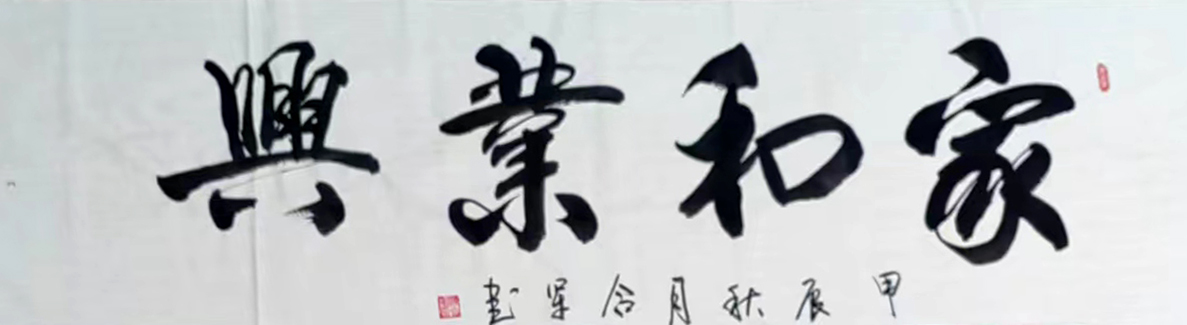 家和業興
甲辰秋月合軍书